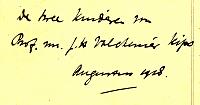 De twee kinderen van
Prof. mr. J. H. Valckenier Kips
Augustus 1918.